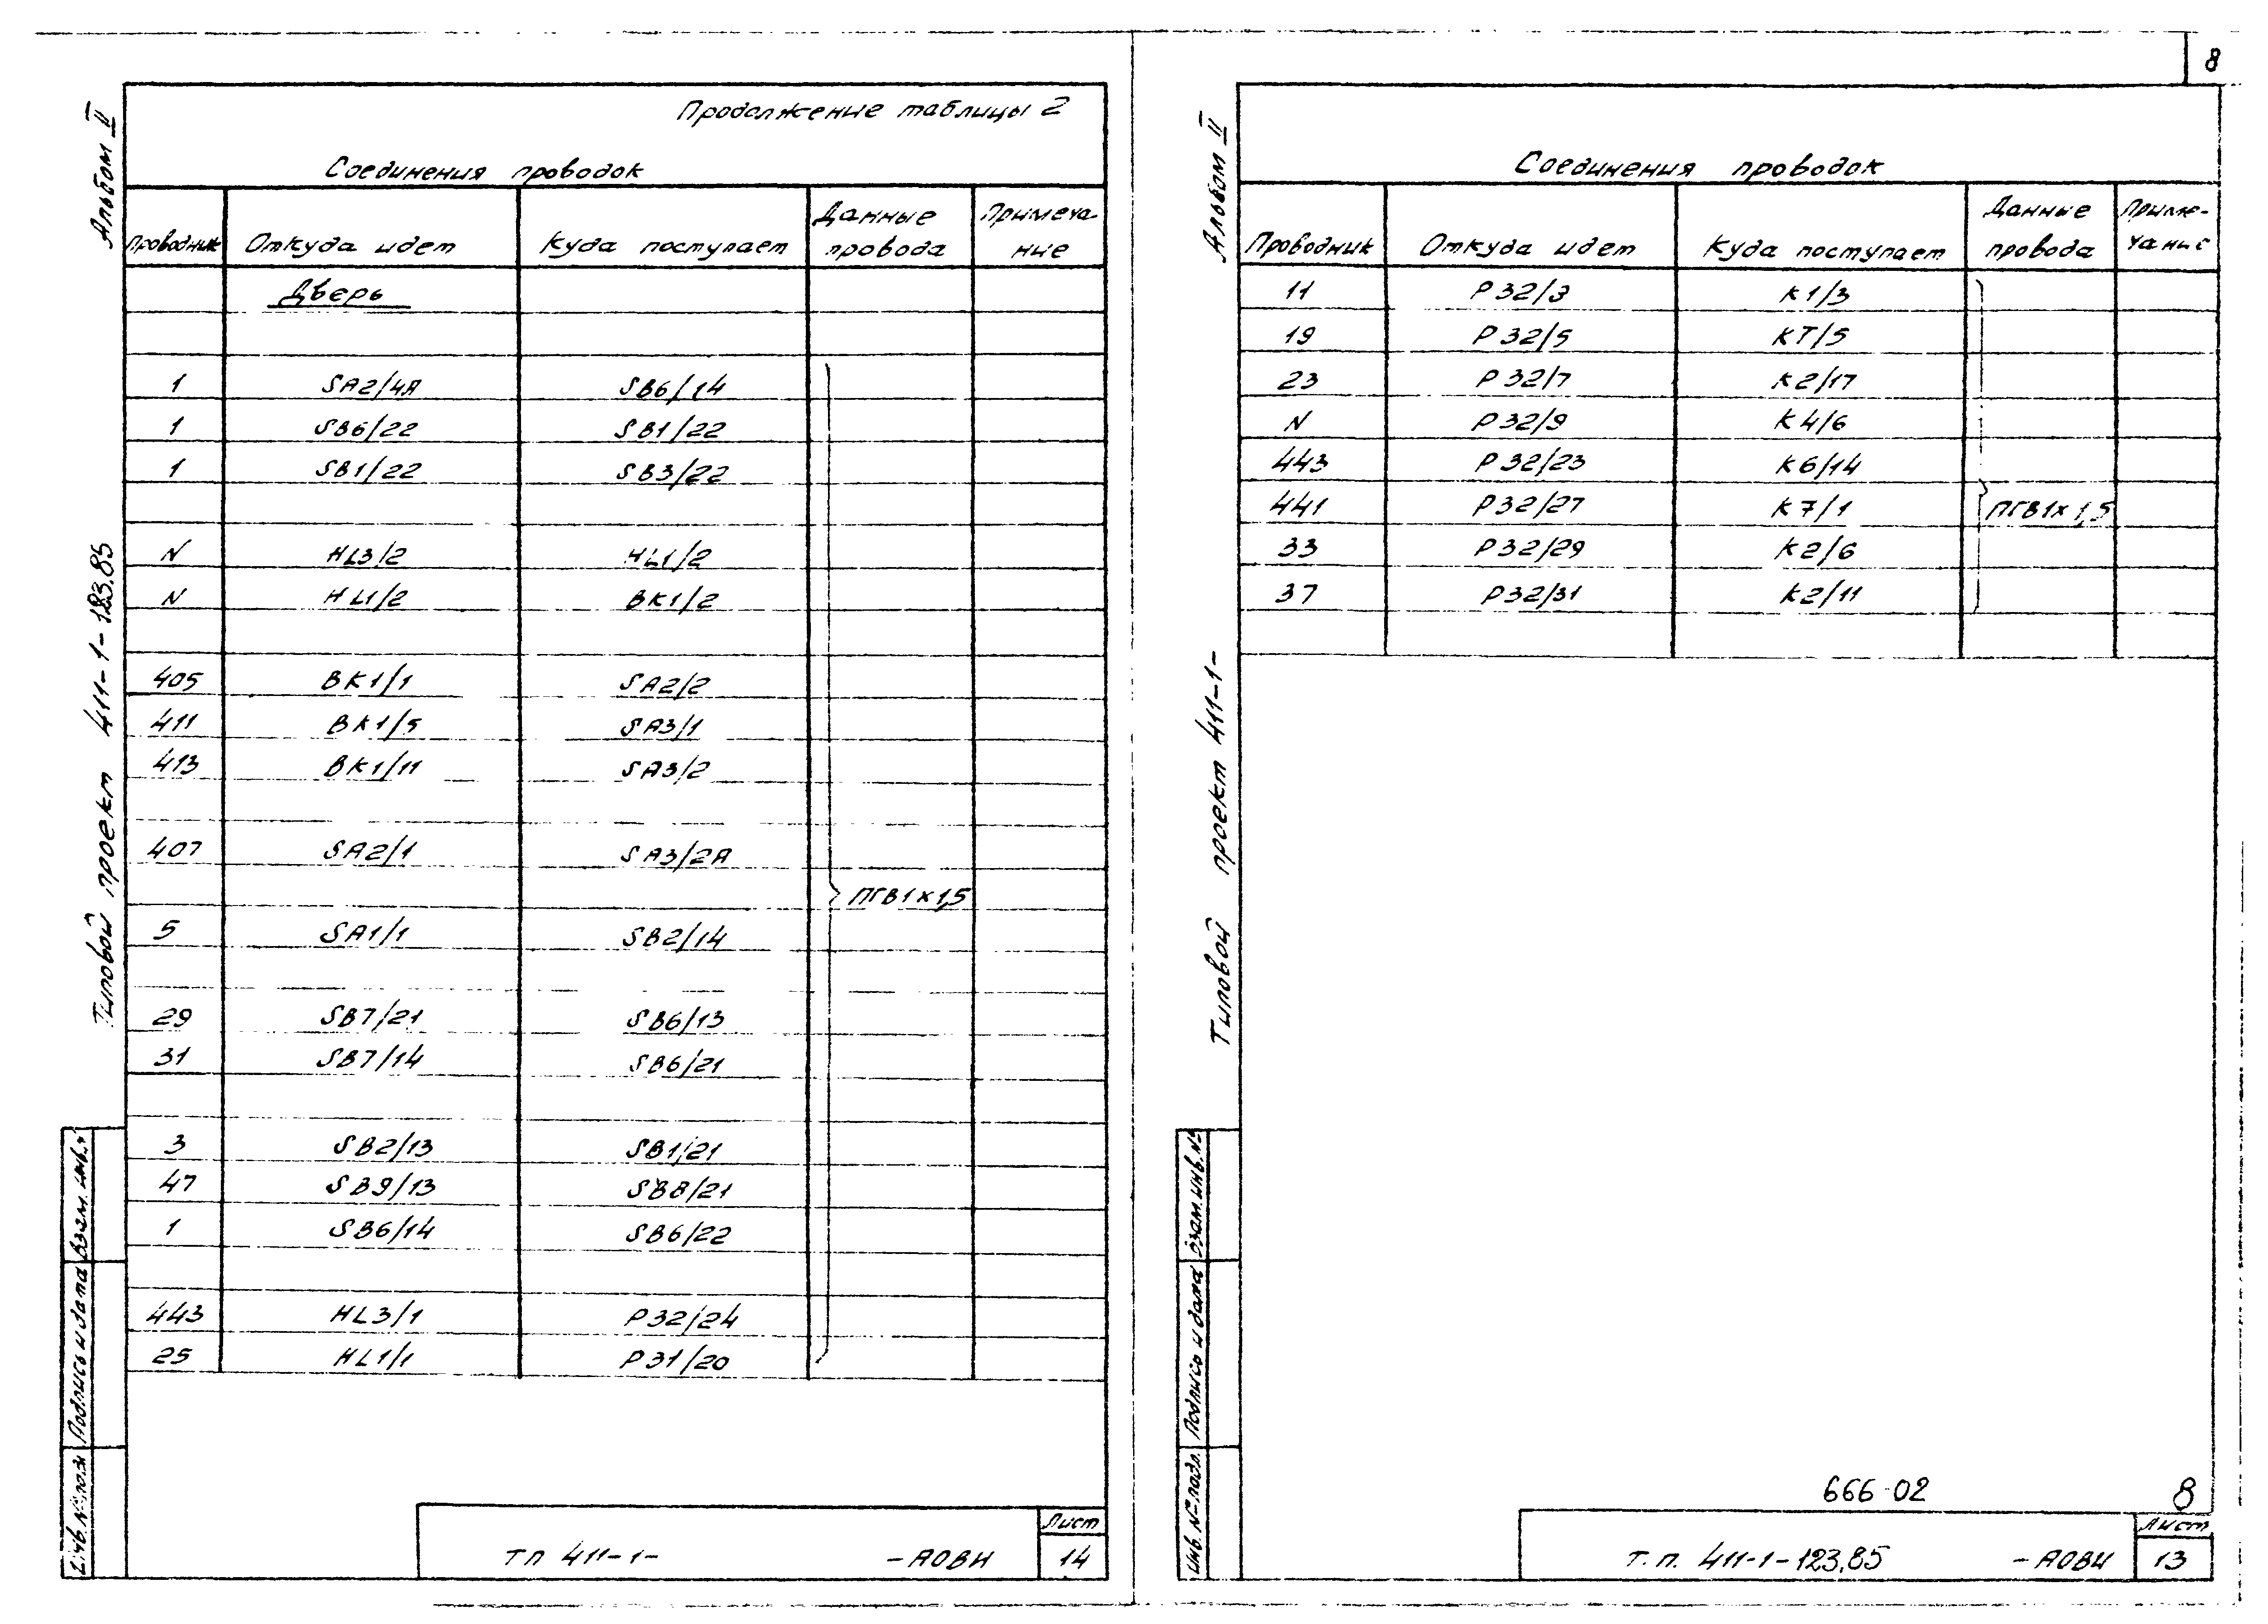 8
Альбом II
Продолжение таблицы 2
Соединения проводок
Проводник Откуда идет Куда поступает Данные провода Примеча-ние
Дверь
1 SA2/4A SB6/14
1 SB6/22 SB1/22
1 SB1/22 SB3/22
N HL3/2 HL1/2
N HL1/2 BK1/2
405 BK1/1 SA2/2
411 BK1/5 SA3/1
413 BK1/11 SA3/2
407 SA2/1 SA3/2A
ПГВ1х1,5
5 SA1/1 SB2/14
29 SB7/21 SB6/13
31 SB7/14 SB6/21
3 SB2/13 SB1/21
47 SB9/13 SB8/21
1 SB6/14 SB6/22
443 HL3/1 Р32/24
25 HL1/1 Р31/20
Типовой проект 411-1-183.85
Взам. инв. №
Подпись и дата
Инв. № подл.
ТП 411-1- -АОВИ
Лист
14
Альбом II
Соединения проводок
Проводник Откуда идет Куда поступает Данные провода Приме-чание
11 Р32/3 К1/3
19 Р32/5 КТ/5
23 Р32/7 К2/17
N Р32/9 К4/6
443 Р32/23 К6/14
441 Р32/27 К7/1 ПГВ1х1,5
33 Р32/29 К2/6
37 Р32/31 К2/11
Типовой проект 411-1-
Взам. инв. №
Подпись и дата
Инв. № подл.
666-02 8
Т.п. 411-1-123.85 -АОВИ
Лист
13